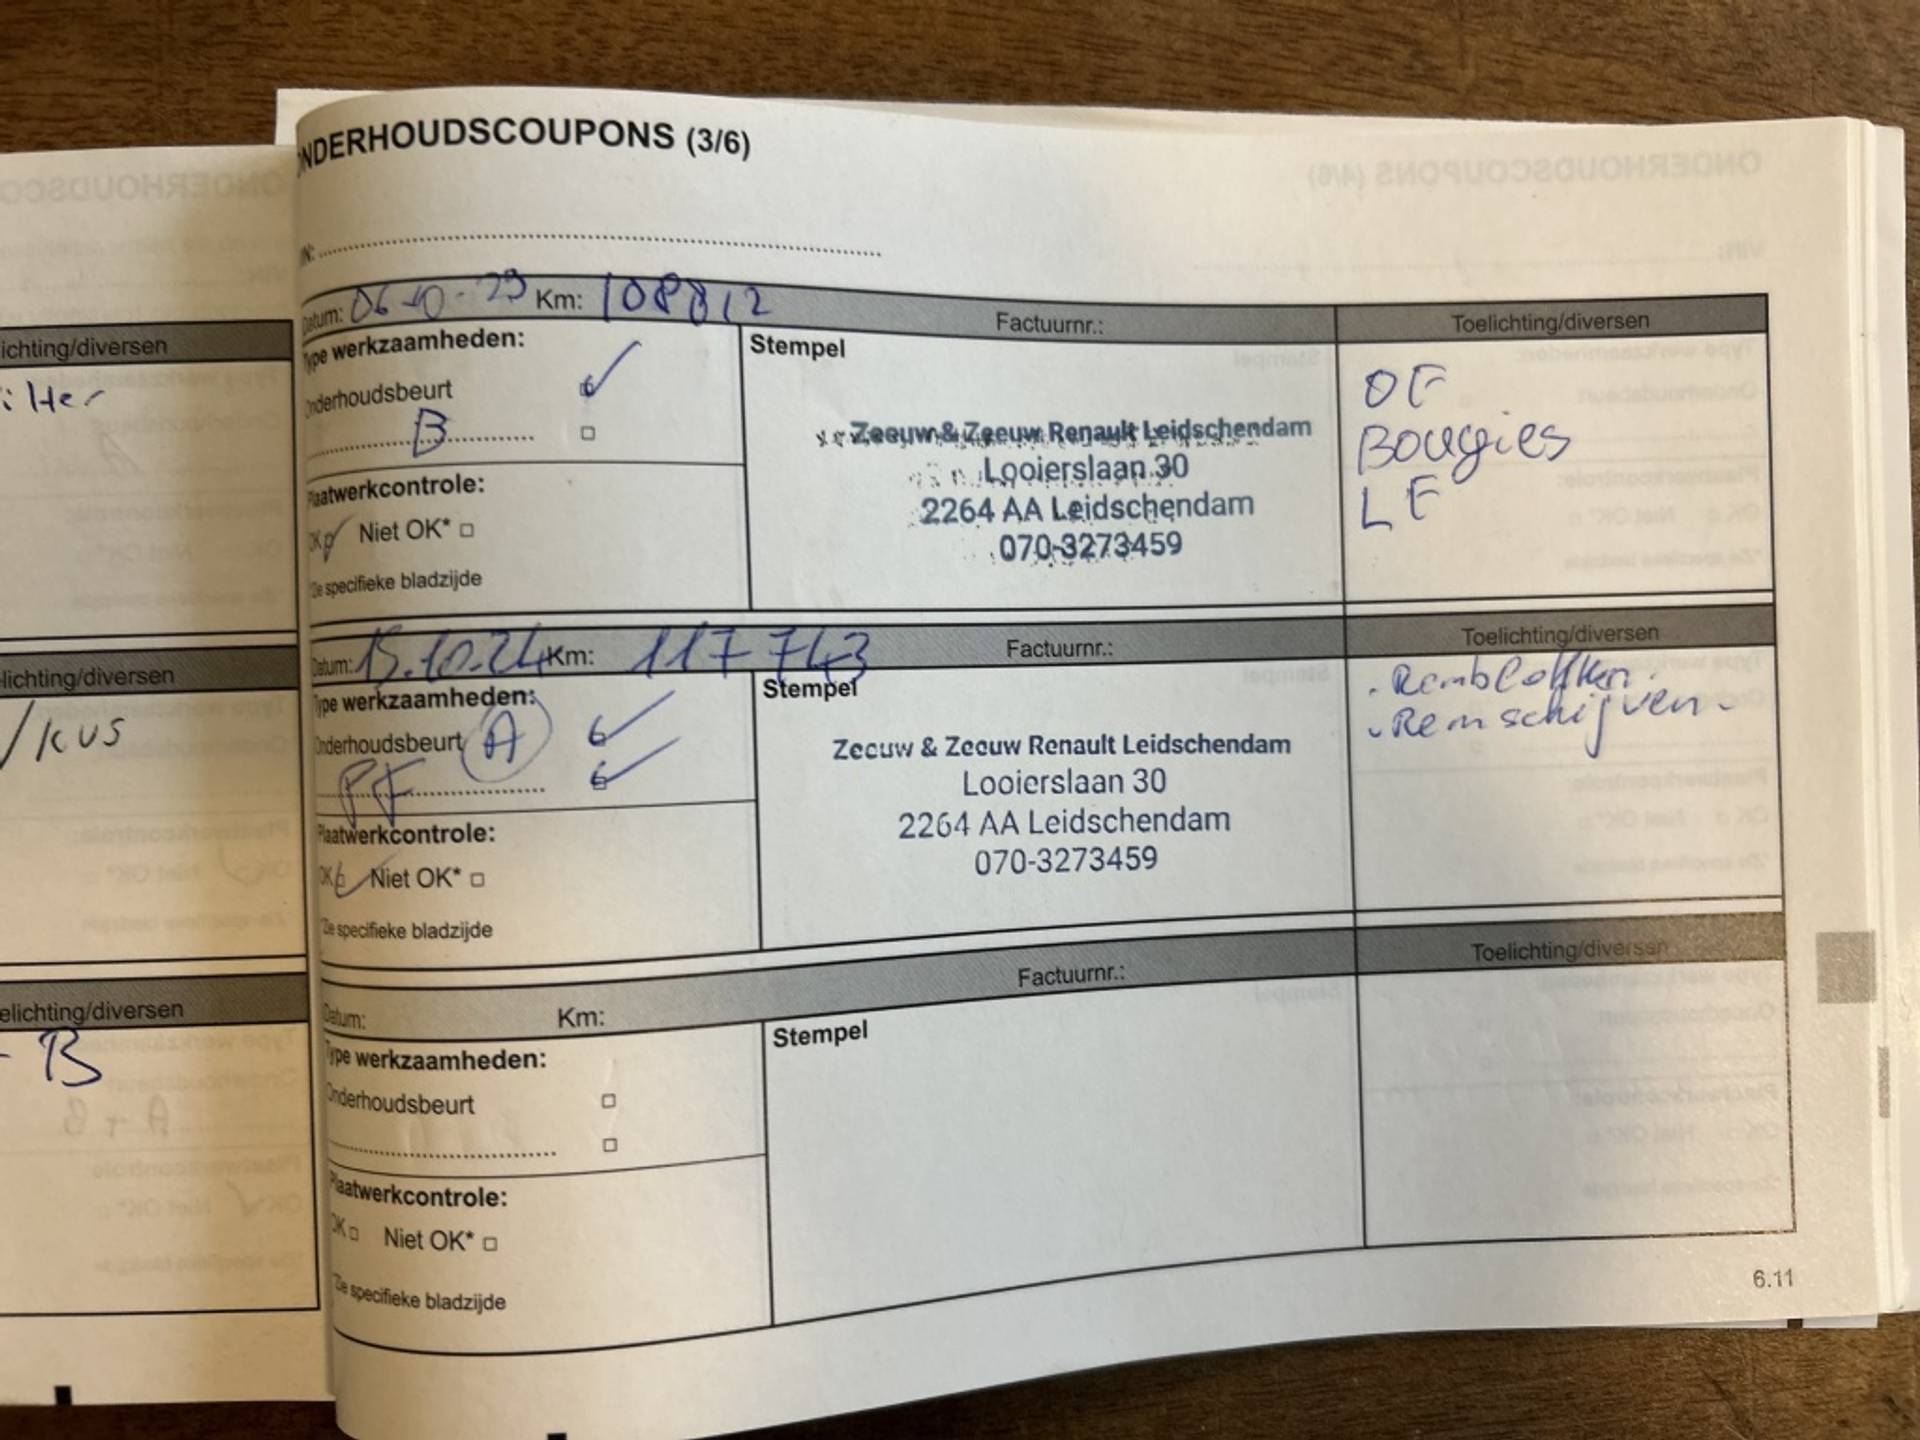 ONDERHOUDSCOUPONS (3/6)
VIN:
Datum: 06-10-23 Km: 108812 Factuurnr.: Toelichting/diversen
Type werkzaamheden:
Onderhoudsbeurt
B
Plaatwerkcontrole:
OK Niet OK*
*Zie specifieke bladzijde
Stempel
Zeeuw & Zeeuw Renault Leidschendam
Looierslaan 30
2264 AA Leidschendam
070-3273459
OF
Bougies
LF
Datum: 15.10.24 Km: 117 743 Factuurnr.: Toelichting/diversen
Type werkzaamheden:
Onderhoudsbeurt A
PF
Plaatwerkcontrole:
OK Niet OK*
*Zie specifieke bladzijde
Stempel
Zeeuw & Zeeuw Renault Leidschendam
Looierslaan 30
2264 AA Leidschendam
070-3273459
. Remblokken.
. Remschijven.
Datum: Km: Factuurnr.: Toelichting/diversen
Type werkzaamheden:
Onderhoudsbeurt
Plaatwerkcontrole:
OK Niet OK*
*Zie specifieke bladzijde
Stempel
6.11